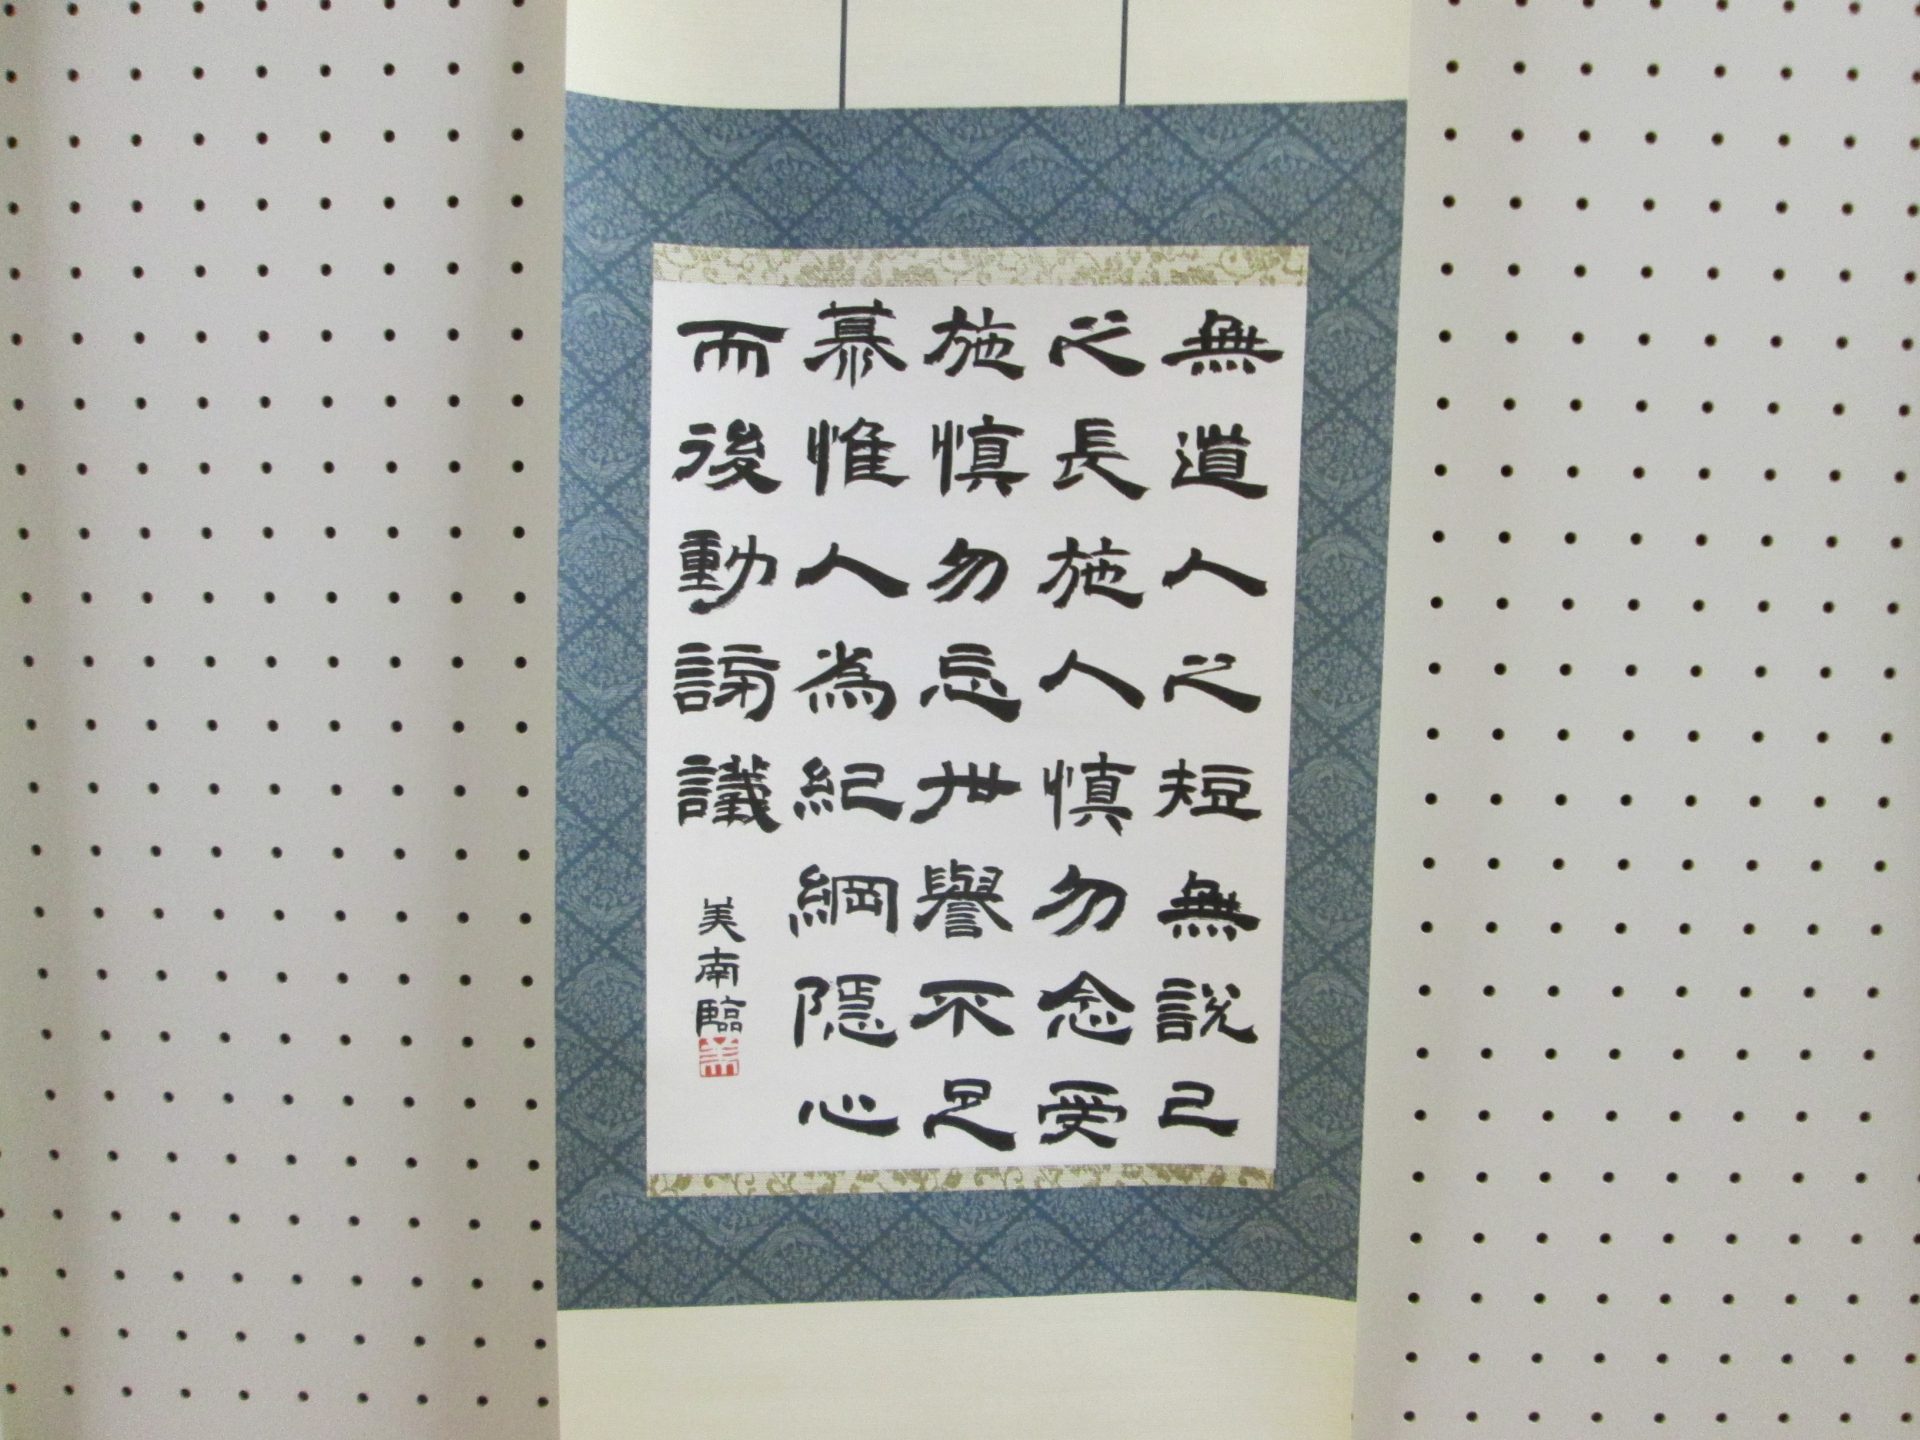 無道人之短無說己
之長施人慎勿念受
施慎勿忘世譽不足
慕惟人為紀綱隱心
而後動謗議
美南臨